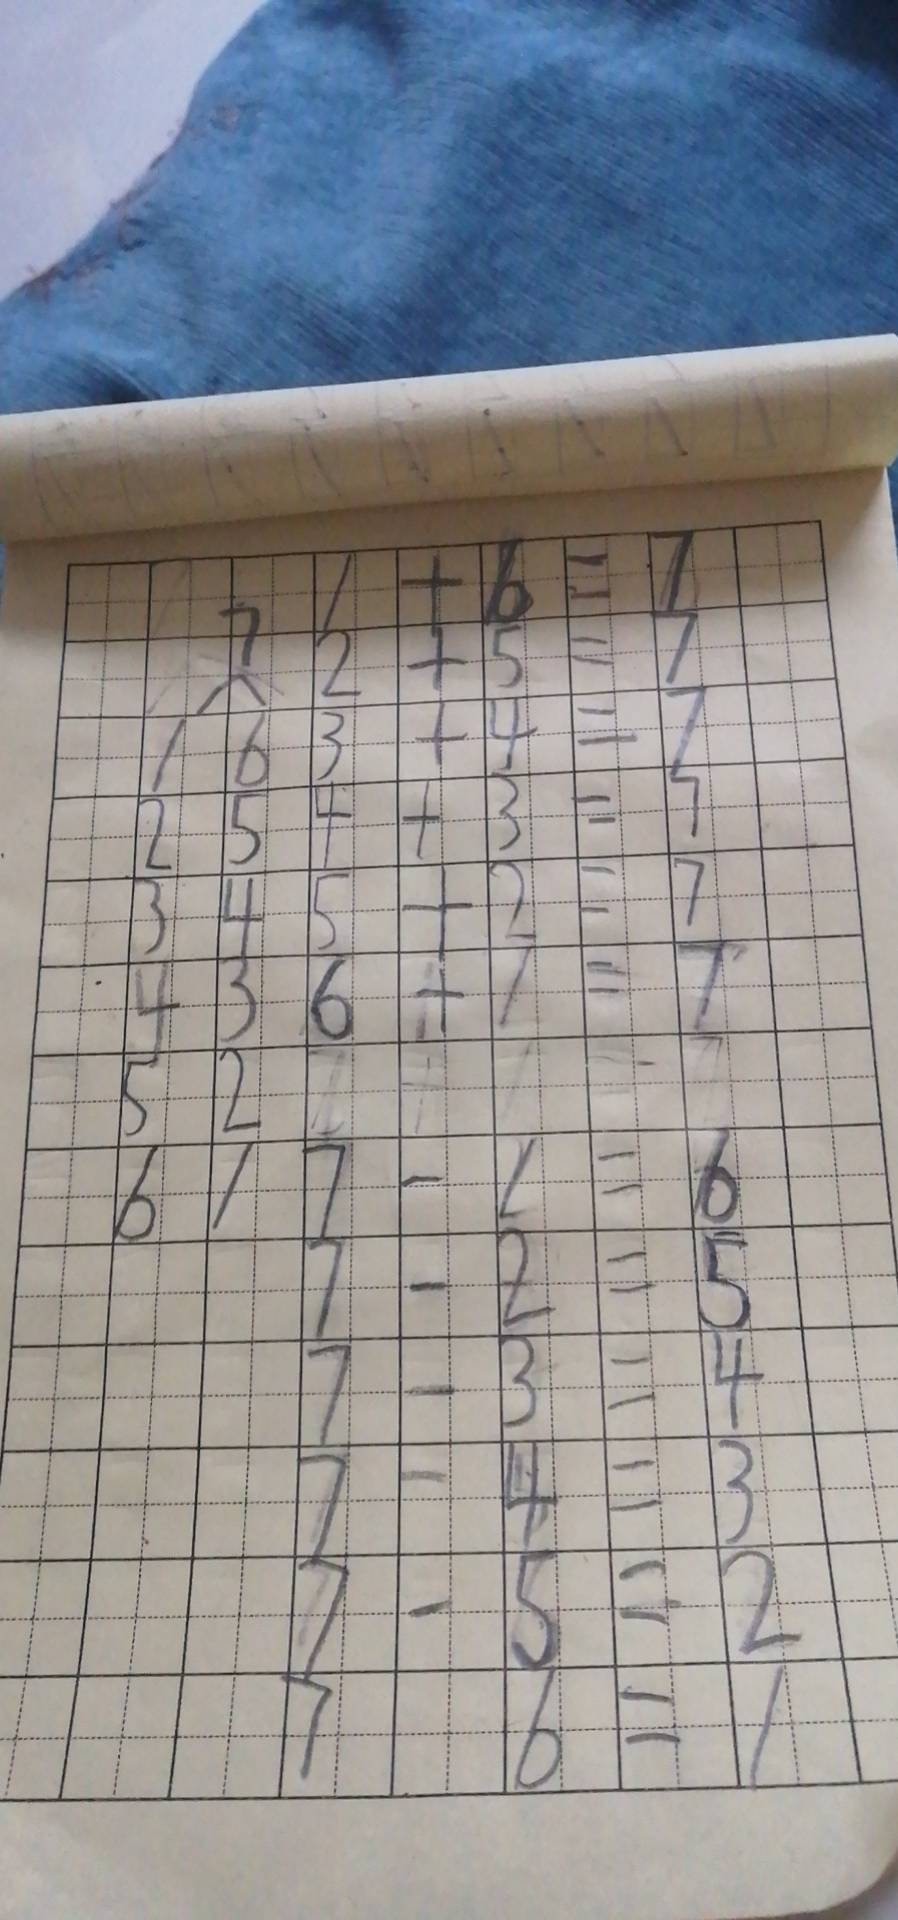 1 + 6 = 7
7 2 + 5 = 7
1 6 3 + 4 = 7
2 5 4 + 3 = 7
3 4 5 + 2 = 7
4 3 6 + 1 = 7
5 2
6 1 7 - 1 = 6
7 - 2 = 5
7 - 3 = 4
7 - 4 = 3
7 - 5 = 2
7 6 = 1